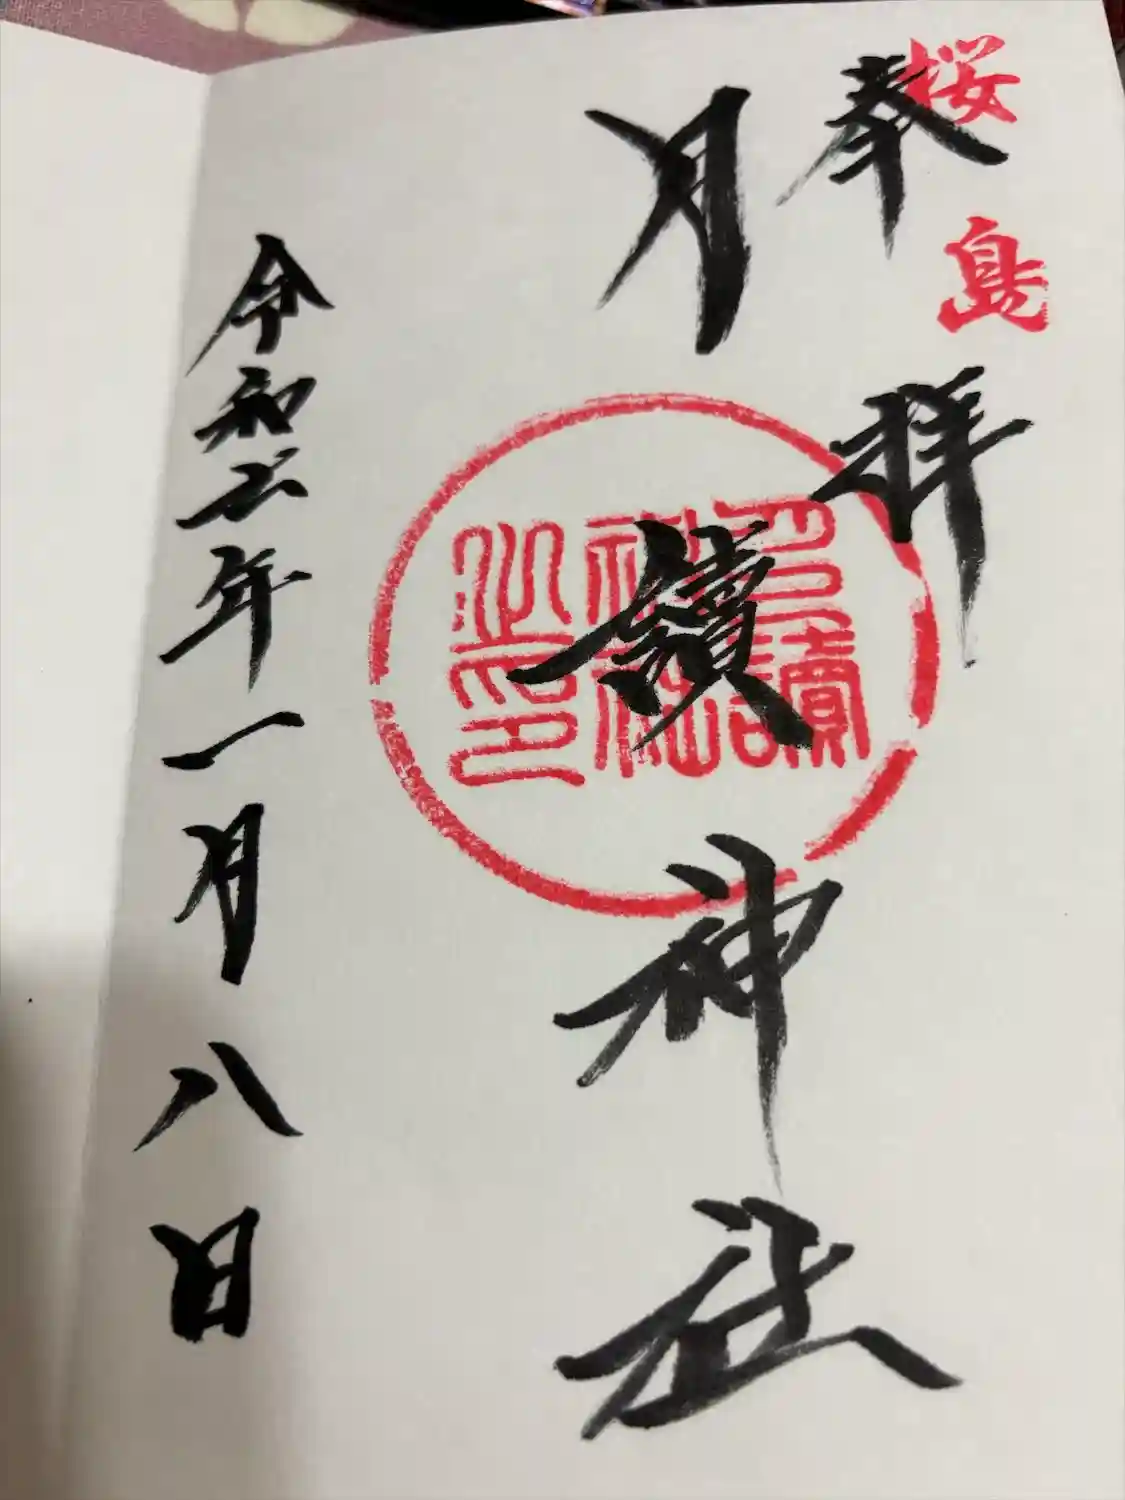 桜島
奉拝
月讀神社
月讀
神社
之印
令和六年一月八日